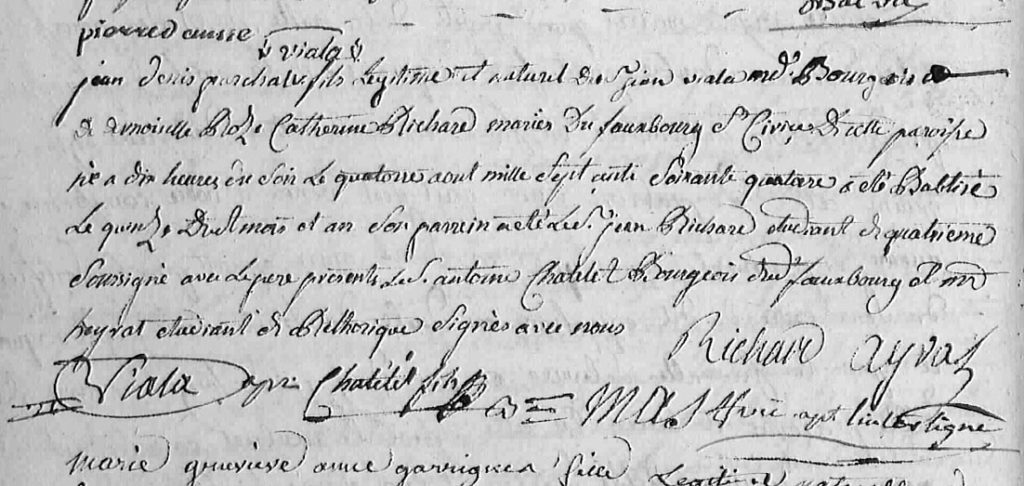 pierre
viala
jean denis paschal fils Legitime et naturel du Sr. jean viala md. Bourgeois &
de demoiselle Roze Catherine Richard mariés du fauxbourg St Civice D icelle paroisse
né a dix heures du soir Le quatorze aout mille sept cents soixante quatorze a été Babtisé
Le quinze Dudt mois et an son parrein a été Le Sr. jean Richard etudiant en quatrieme
soussigné avec Le pere presents Le Sr. antoine Chatilet Bourgeois dudt fauxbourg et
peyrat etudiant en Rethorique signés avec nous
Richard ayral
Viala Chatilet fils
marie genevieve anne garrigues fille Legitime et naturelle